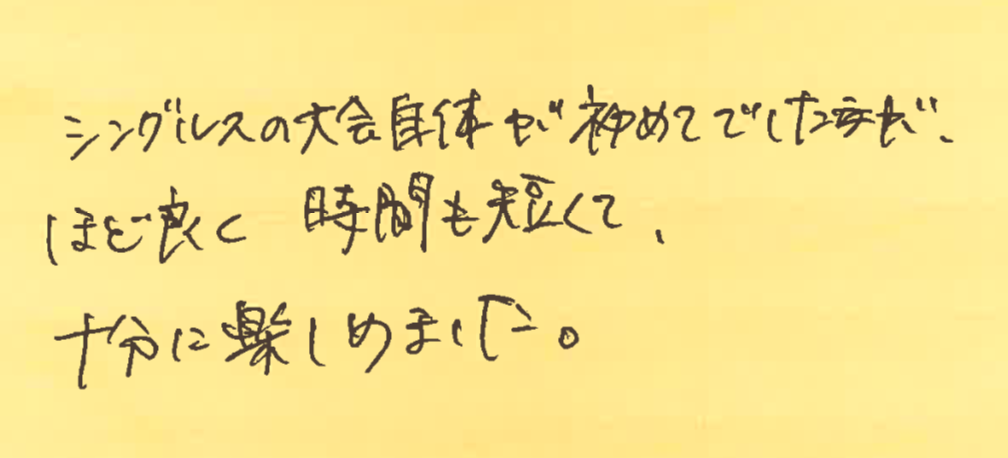 シングルスの大会自体が初めてでしたが、
ほど良く 時間も短くて、
十分に楽しめました。